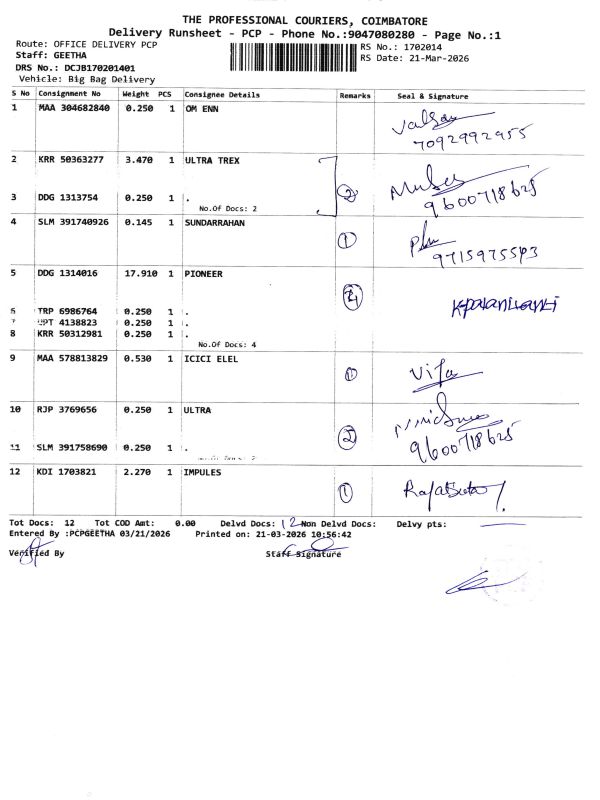 THE PROFESSIONAL COURIERS, COIMBATORE
Delivery Runsheet - PCP - Phone No.:9047080280 - Page No.:1
Route: OFFICE DELIVERY PCP
RS No.: 1702014
Staff: GEETHA
RS Date: 21-Mar-2026
DRS No.: DCJB170201401
Vehicle: Big Bag Delivery
S No Consignment No Weight PCS Consignee Details Remarks Seal & Signature
1 MAA 304682840 0.250 1 OM ENN
7092992955
2 KRR 50363277 3.470 1 ULTRA TREX
3 DDG 1313754 0.250 1 . 2
No.Of Docs: 2
9600718625
4 SLM 391740926 0.145 1 SUNDARRAHAN
1
9715975593
5 DDG 1314016 17.910 1 PIONEER
4
6 TRP 6986764 0.250 1 .
7 UPT 4138823 0.250 1 .
8 KRR 50312981 0.250 1 .
No.Of Docs: 4
9 MAA 578813829 0.530 1 ICICI ELEL
1
10 RJP 3769656 0.250 1 ULTRA
2
9600718625
11 SLM 391758690 0.250 1 .
No.Of Docs: 2
12 KDI 1703821 2.270 1 IMPULES
1
Tot Docs: 12 Tot COD Amt: 0.00 Delvd Docs: 12 Non Delvd Docs: Delvy pts:
Entered By :PCPGEETHA 03/21/2026 Printed on: 21-03-2026 10:56:42
Verified By Staff Signature